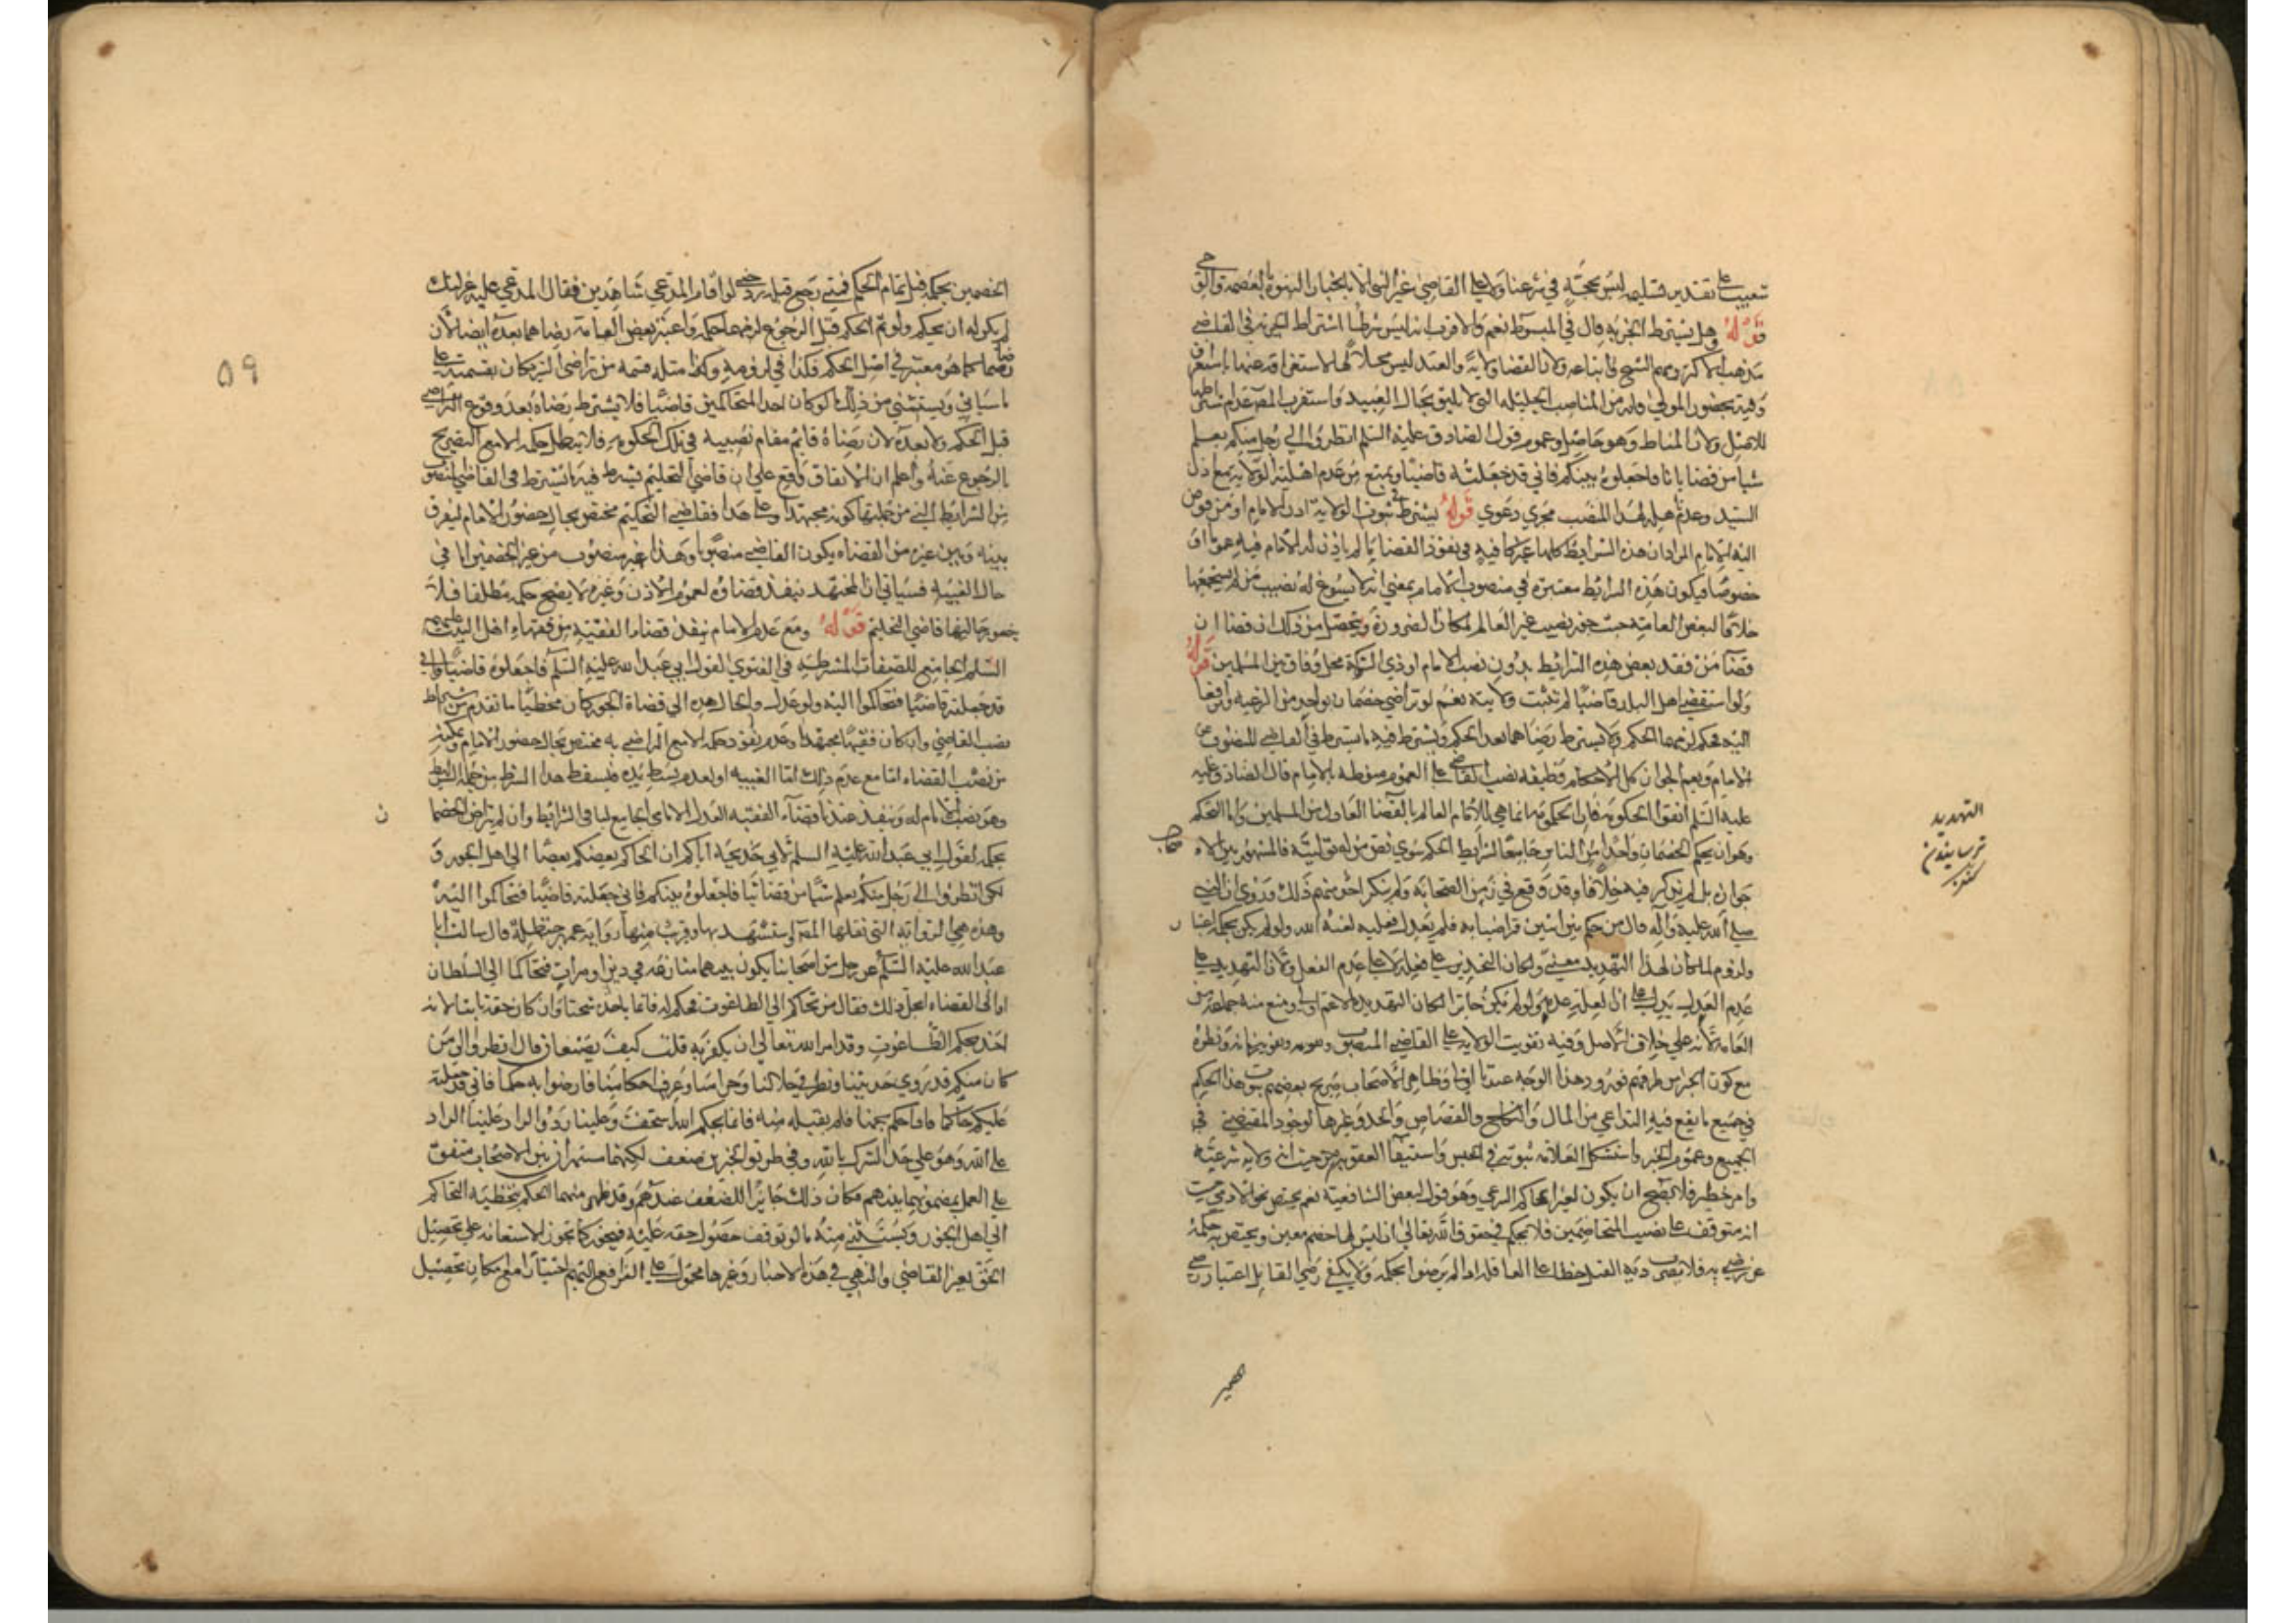 شعيب على تقدير تسليمه ليس بحجة في شرعنا ولا على القاضي غير النبي لانجبار النبوة بالعصمة والوحي
قوله وهل يشترط الحرية قال في المبسوط نعم والاقرب انه ليس شرطا اشتراط الحرية في القاضي
مذهب الاكثر ومنهم الشيخ واتباعه ولان القضا ولاية والعبد ليس محلا لها لاستغراق
وقته بحضور المولى ولانه من المناصب الجليلة التي لا يليق بحال العبيد واستقرب المصه عدم اشتراطها
للاصل ولان المناط وهو حاصل وعموم قول الصادق عليه السلم انظروا الى رجل منكم يعلم
شيا من قضايانا فاجعلوه بينكم فاني قد جعلته قاضيا ويمنع من عدم اهلية الولاية مع اذن
السيد وعدم اهليته لهذا المنصب مجرى دعوى قوله يشترط في ثبوت الولاية اذن الامام او من فوض
اليه الامام المراد ان هذه الشرايط كلها غير كافيه في نفوذ القضا ما لم ياذن له الامام فيه عموما او
خصوصا فيكون هذه الشرايط معتبرة في منصوب الامام بمعنى انه لا يسوغ له نصيب من لم يستجمعها
خلافا لبعض العامة حيث جوز نصيب غير العالم لمكان الضرورة ويتحصل من ذلك ان قضا
قضآ من فقد بعض هذه الشرايط بدون نصب الامام او ذي الشوكة محل وفاق بين المسلمين قوله
ولو استقضى اهل البلد قاضيا لم تثبت ولايته نعم لو تراضى خصمان بواحد من الرعيه وترافعا
اليه فحكم لزمهما الحكم ولا يشترط رضاهما بعد الحكم ويشترط فيه ما يشترط في القاضي المنصوب عن
الامام ويعم الجواز كل الاحكام وظيفه نصب القاضي على العموم منوطه بالامام قال الصادق
عليه السلم اتقوا الحكومة فان الحكومة انما هي للامام العالم بالقضا العادل في المسلمين واما التحكم
وهو ان يحكم الخصمان واحدا من الناس جامعا لشرايط الحكم سوى نص من له توليته فالمشهور بين الامامية
جوازه بل لم يذكر فيه خلافا وقد وقع في زمن الصحابه ولم ينكر احد منهم ذلك وروي ان النبي
صلى الله عليه وآله قال من حكم بين اثنين تراضيا به فلم يعدل فعليه لعنة الله ولو لم يكن لحكمه اعتبار
ولزوم لما كان لهذا التهديد معنى ولكان التحذير على فعله لا على عدم الفعل ولان التهديد على
عدم العدل يدل على ان العلة عدمه ولو لم يكن جايزا لكان التهديد بالاعم اولى ومنع منه جماعة من
العامة لانه على خلاف الاصل وفيه تفويت الولايه على القاضي المنصوب
مع كون الخبر من طرقهم فورود هذا الوجه عندنا
في جميع ما يقع فيه التداعي من المال والنكاح والقصاص والحدود وغيرها لوجود المقتضي في
الجميع وعموم الخبر واستشكل العلامه ثبوته في الحبس واستيفآ العقوبة من حيث انه ولاية شرعيه
وامر خطير فلا يصح ان يكون لغير الحاكم الشرعي وهو قول لبعض الشافعية نعم يختص بحق الادمي من حيث
انه متوقف على نصيب المتخاصمين فلا يحكم في حقوق الله تعالى اذ ليس لها خصم معين ويختص حكمه
عن رضي به فلا يضرب دية القتل خطا على العاقله اذا لم يرضوا بحكمه ولا يكفي رضي القاتل اعتبار رضى
التهديد
ترسانيدن
كنز
الخصمين بحكمه قبل تمام الحكم فمتى رجع قبله حتى لو اقام المدعي شاهدين فقال المدعى عليه عزلتك
لم يكن له ان يحكم ولو تم الحكم قبل الرجوع لزمهما حكمه واعتبر بعض العامة رضاهما بعده ايضا لان
رضاهما كما هو معتبر في اصل الحكم فكذا في لزومه وكذا مثله قسمه من تراضى الشريكان بقسمته على
ما سياتي ويستثنى من ذلك ما لو كان احد المتحاكمين قاضيا فلا يشترط رضاه بعد وقوع التراضي
قبل الحكم ولا بعده لان رضاه قائم مقام نصيبه في تلك الحكومه فلا تبطل حكمه الا مع التصريح
بالرجوع عنه واعلم ان الاتفاق واقع على ان قاضي التحكيم يشترط فيه ما يشترط في القاضي المنصوب
من الشرايط التي من جملتها كونه مجتهدا وعلى هذا فقاضي التحكيم مختص بحال حضور الامام ليفرق
بينه وبين غيره من القضاه يكون القاضي منصوبا وهذا غير منصوب من غير الخصمين اما في
حال الغيبه فسياتي ان المجتهد ينفذ قضاوه لعموم الاذن وغيره لا يصح حكمه مطلقا فلا
يتصور حاليها قاضي التحكيم قوله ومع عدم الامام ينفذ قضاء الفقيه من فقهاء اهل البيت عليهم
السلم الجامع للصفات المشترطه في الفتوى لقول ابي عبد الله عليه السلم فاجعلوه قاضيا فاني
قد جعلته قاضيا فتحاكموا اليه ولو عدل والحال هذه الى قضاة الجور كان مخطيا ما تقدم من اشتراط
نصب القاضي وان كان فقيها مجتهدا وعدم نفوذ حكمه الا مع التراضي به مختص بحال حضور الامام وتمكينه
من نصب القضاء اما مع عدم ذلك اما لغيبه او لعدم بسط يده فيسقط هذا الشرط من جملة الشرايط
وهو نصب الامام له وينفذ عندنا قضآء الفقيه العدل الامامي الجامع لباقي الشرايط وان لم يتراض الخصما
ن
بحكمه لقول ابي عبد الله عليه السلم لابي خديجه اياكم ان يحاكم بعضكم بعضا الى اهل الجور و
لكن انظروا الى رجل منكم يعلم شيا من قضائنا فاجعلوه بينكم فاني جعلته قاضيا فتحاكموا اليه
وهذه هي الرواية التي نقلها المصه واستشهد بها وقريب منها رواية عمر بن حنظله قال سالت ابا
عبد الله عليه السلم عن رجلين من اصحابنا يكون بينهما منازعه في دين او ميراث فتحاكما الى السلطان
او الى القضاء ايحل ذلك فقال من تحاكم الى الطاغوت فحكم له فانما ياخذ سحتا وان كان حقه ثابتا لانه
اخذ بحكم الطاغوت وقد امر الله تعالى ان يكفر به قلت كيف يصنعان قال انظروا الى من
كان منكم قد روى حديثنا ونظر في حلالنا وحرامنا وعرف احكامنا فارضوا به حكما فاني قد جعلته
عليكم حاكما فاذا حكم بحكمنا فلم يقبله منه فانما بحكم الله استخف وعلينا رد والراد علينا الراد
على الله وهو على حد الشرك بالله وفي طريق الخبرين ضعف لكنهما مشتهران بين الاصحاب متفق
على العمل بمضمونهما بينهم فكان ذلك جابرا للضعف عندهم وقد ظهر منهما الحكم بتخطئه التحاكم
الى اهل الجور ويستثنى منه ما لو توقف حصول حقه عليه فيجوز كما تجوز الاستعانه على تحصيل
الحق بغير القاضي والنهي في هذه الاخبار وغيرها محمول على الترافع اليهم اختيارا مع امكان تحصيل
٥٩